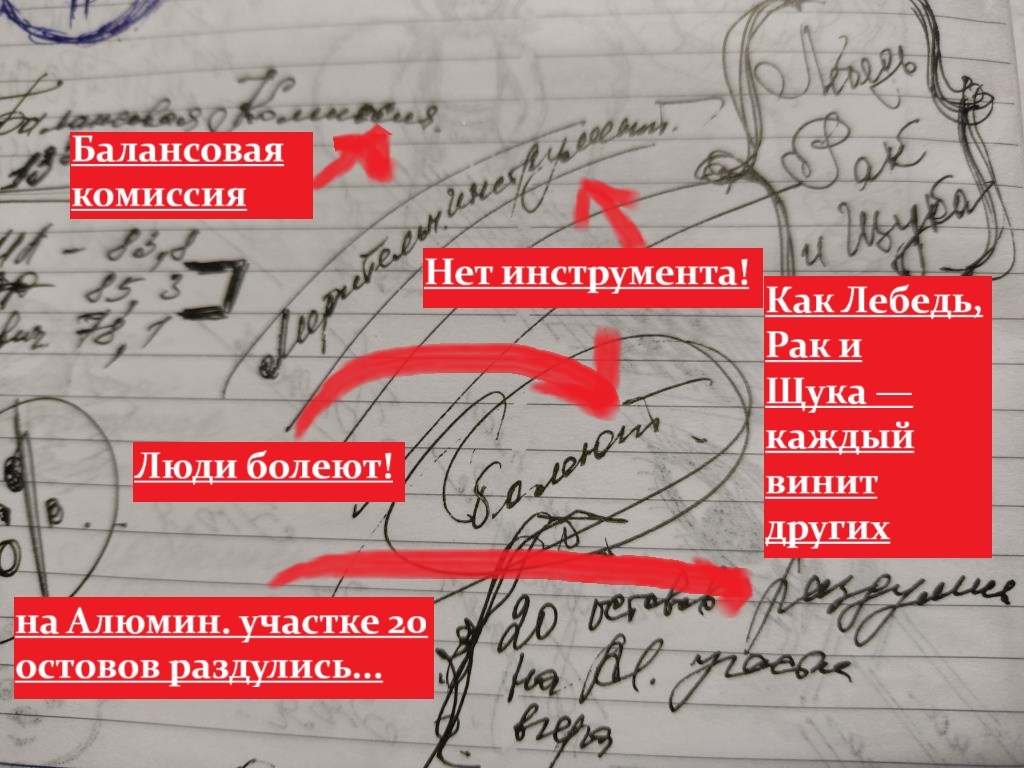 Лебедь
Рак
и Щука
Балансовая Комиссия.
Балансовая
комиссия
13
Мерительн. инструмент.
83,8
85,3
78,1
Нет инструмента!
Как Лебедь,
Рак и
Щука —
каждый
винит
других
Люди болеют!
Балеют
В
на Алюмин. участке 20
остовов раздулись...
20 остовов раздулись
на Al. участке
вчера